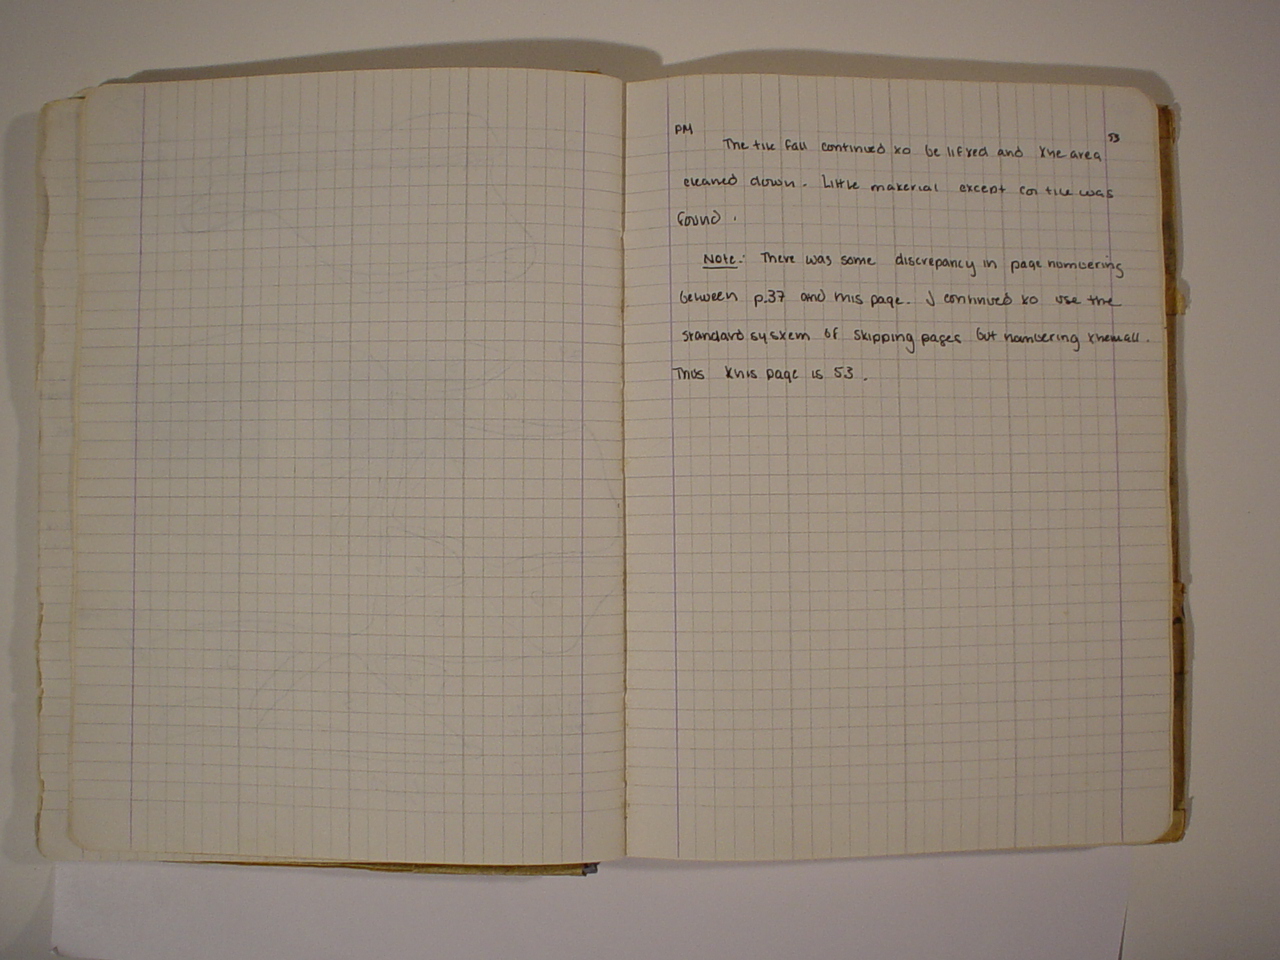 PM
53
The tile fall continued to be lifted and the area
cleaned down. Little material except for tile was
found.
Note: There was some discrepancy in page numbering
between p.37 and this page. I continued to use the
standard system of skipping pages but numbering them all.
Thus this page is 53.